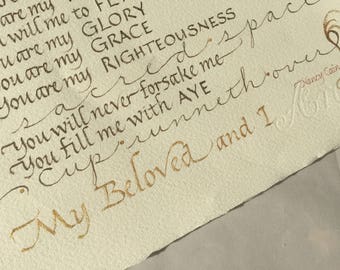 You will me to FE
You are my GLORY
You are my GRACE
You are my RIGHTEOUSNESS
sacred space
You will never forsake me
You fill me with AYE
Cup runneth over
My Beloved and I
Nancy